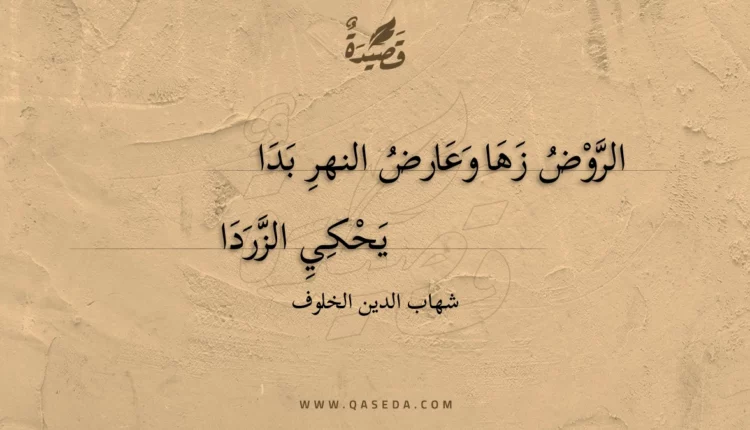 قَصِيْدَةٌ
الرَّوْضُ زَهَا وَعَارضُ النهرِ بَدَا
يَحْكِيِ الزَّرَدَا
شهاب الدين الخلوف
WWW.QASEDA.COM